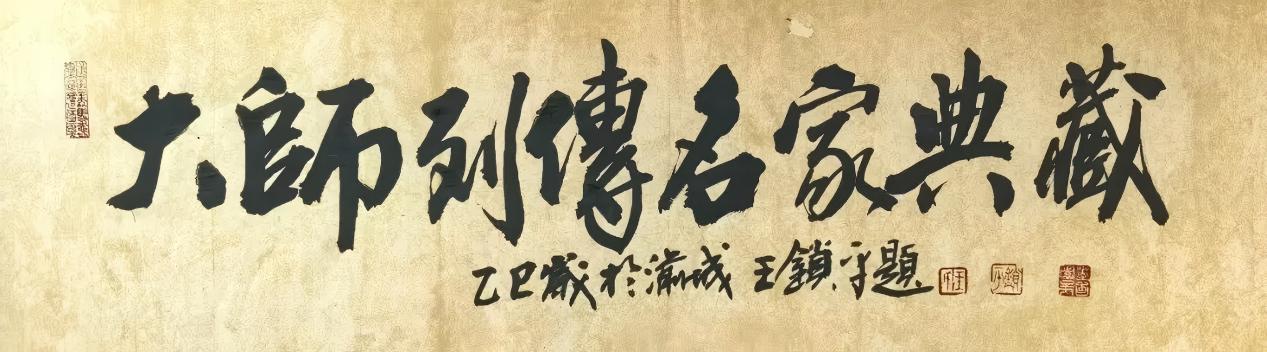 大師列傳名家典藏
乙巳歲於渝城 王鎖于題